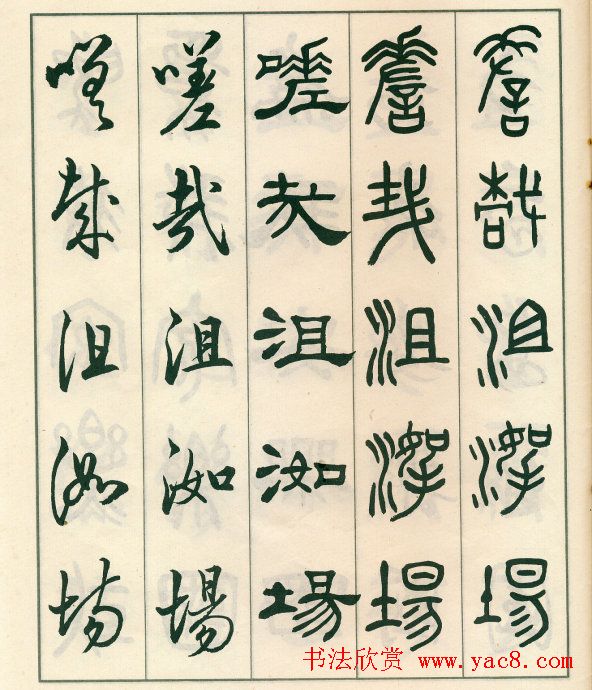 嗟哉沮洳場
嗟哉沮洳場
嗟哉沮洳場
嗟哉沮洳場
嗟哉沮洳場
书法欣赏 www.yac8.com